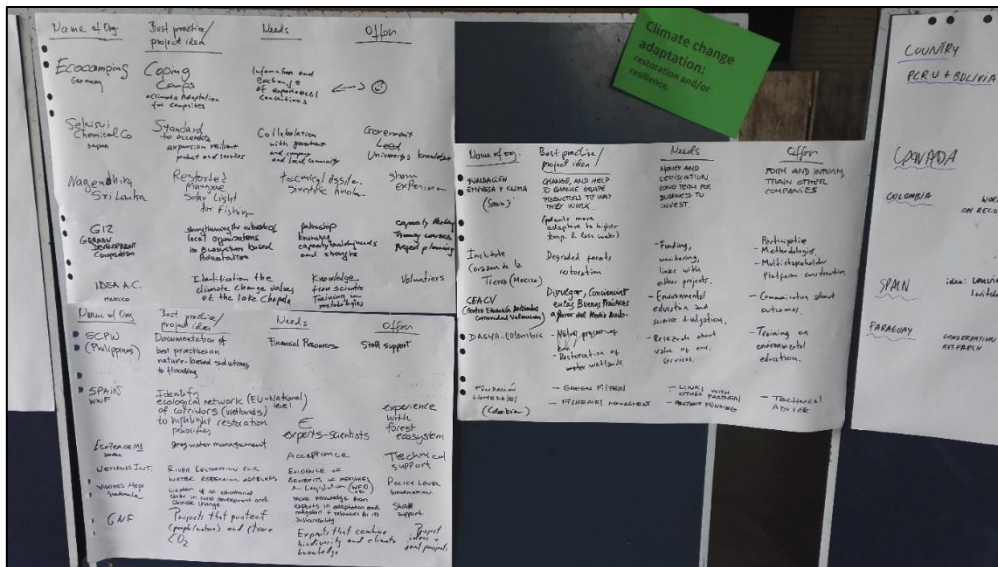 Name of Org.
Best practice/
project idea
Needs
Offer
Ecocamping
Germany
Coping
Camps
climate Adaptation
for campsites
Information and
Exchange
of experiences/
Sekisui
Chemical Co
Japan
Standard
to accelerate
expansion resilient
product and services
Collaboration
with government
and company
and local community
Government
Lead
University knowledge
Nagendhira
Sri Lanka
Restored
Mangrove
Solar Light
for fishing
share
experience
GIZ
GERMAN
DEVELOPMENT
Cooperation
strengthening the networks of
local organizations
in Ecosystem based
Adaptation
knowledge
capacity building needs
Training courses
Project planning
IDEA A.C.
Mexico
Identification the
climate change values
of the lake Chapala
Knowledge
from scientists
Training in
Volunteers
Name of Org
Best practice/
project idea
Needs
Offer
SCPW
(Philippines)
Documentation of
best practices on
nature-based solutions
to flooding
Financial Resources
Staff support
SPAIN
WWF
Identify
ecological network (EU-National)
level
of corridors (wetlands)
to highlight restoration
priorities
experts-scientists
experience
with
forest
ecosystem
grey water management
Acceptance
Technical
support
WETLANDS INT.
RIVER RESTORATION FOR
WATER RETENTION MEASURES
EVIDENCE OF
BENEFITS OF MEASURES
& Legislation (WFD)
POLICY LEVEL
INFORMATION
Guatemala
Creation of an educational
center in rural development and
climate change
more knowledge from
experts in adaptation and
mitigation + resources for its
sustainability
Staff
support
GNF
Projects that protect
(people/nature) and store
CO2
Experts that combine
biodiversity and climate
knowledge
Project
ideas +
good projects
Climate change
adaptation:
restoration and/or
resilience.
Name of org.
Best practice/
project idea
Needs
Offer
FUNDACIÓN
EMPRESA Y CLIMA
(Spain)
CHANGE, AND HELP
TO CHANGE GRAPE
PRODUCTORS TO WAY
THEY WORK.
adaptive to higher
temp. & less water)
MONEY AND
LEGISLATION
LONG TERM FOR
BUSINESS TO
INVEST.
FORM AND INFORM,
TRAIN OTHER
COMPANIES
Institute
Corazón de la
Tierra (Mexico)
Degraded forests
restoration
- Funding,
monitoring,
links with
other projects.
Participative
- Methodologies,
- Multistakeholder
Platform construction
CEACV
Centro Educación Ambiental
Comunidad Valenciana
Divulgar, Concienciar
en las Buenas Prácticas
a favor del Medio Amb.
- Environmental
education and
science divulgation.
- Communication about
outcomes.
DAGMA-Colombia
- Restoration of
water wetlands
- Research about
value of env.
services.
- Training on
environmental
education.
FUNDACIÓN
HUMEDALES
(Colombia)
- GREEN FILTERS
- FISHERIES MANAGEMENT
- LINKS WITH
OTHER PARTNERS
- PROJECT FUNDING
- TECHNICAL
ADVICE
COUNTRY
PERU + BOLIVIA
CANADA
COLOMBIA
SPAIN
idea:
PARAGUAY
CONSERVATION
RESEARCH